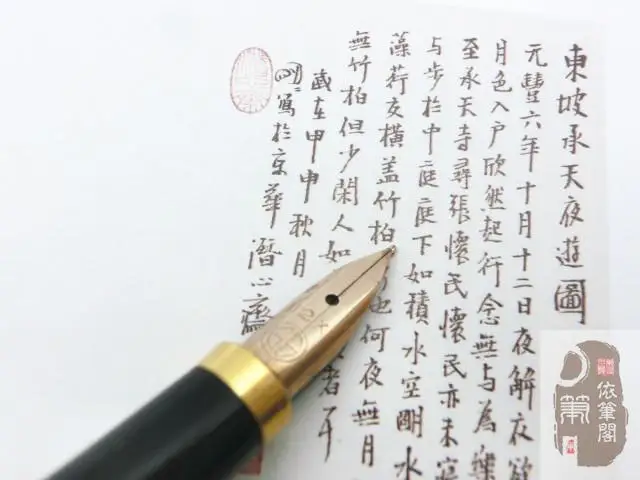 東坡承天夜遊圖
元豐六年十月十二日夜解衣欲
月色入户欣然起行念無与為樂
至承天寺尋張懷民懷民亦未寢
与步於中庭庭下如積水空明水
藻荇交橫盖竹柏也何夜無月
無竹柏但少閑人如者耳
歲在甲申秋月
寫於京華潛心齋
依筆閣